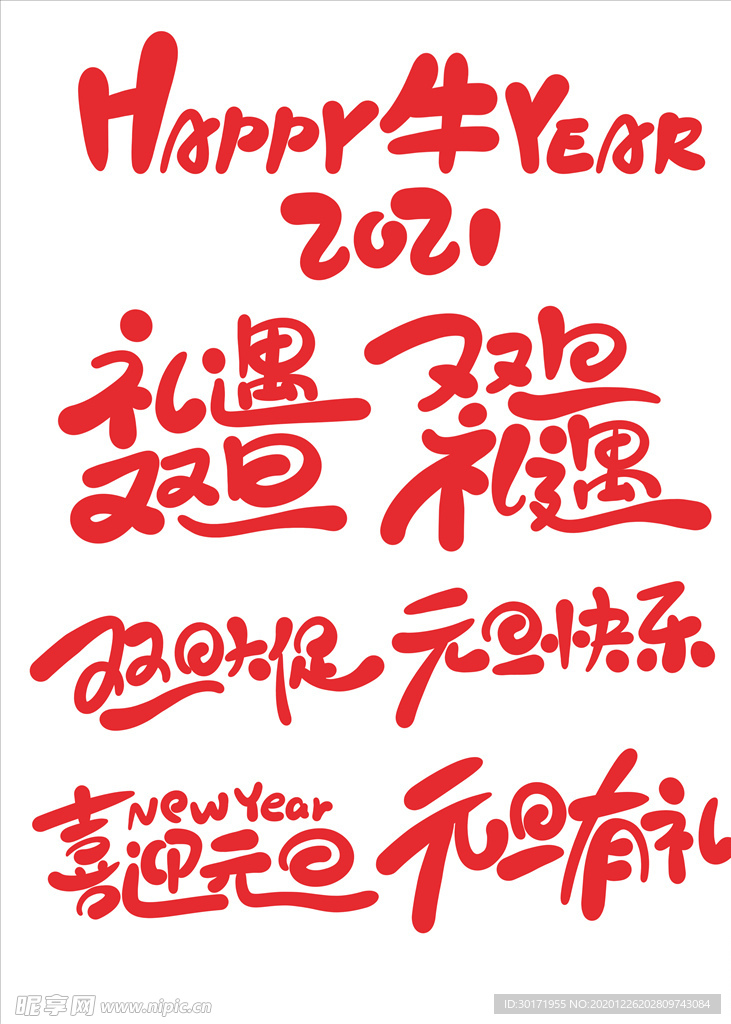 HAPPY牛YEAR
2021
礼遇
双旦
双旦
礼遇
双旦大促
元旦快乐
New Year
喜迎元旦
元旦有礼
昵享网 www.nipic.cn
ID:30171955 NO:20201226202809743084